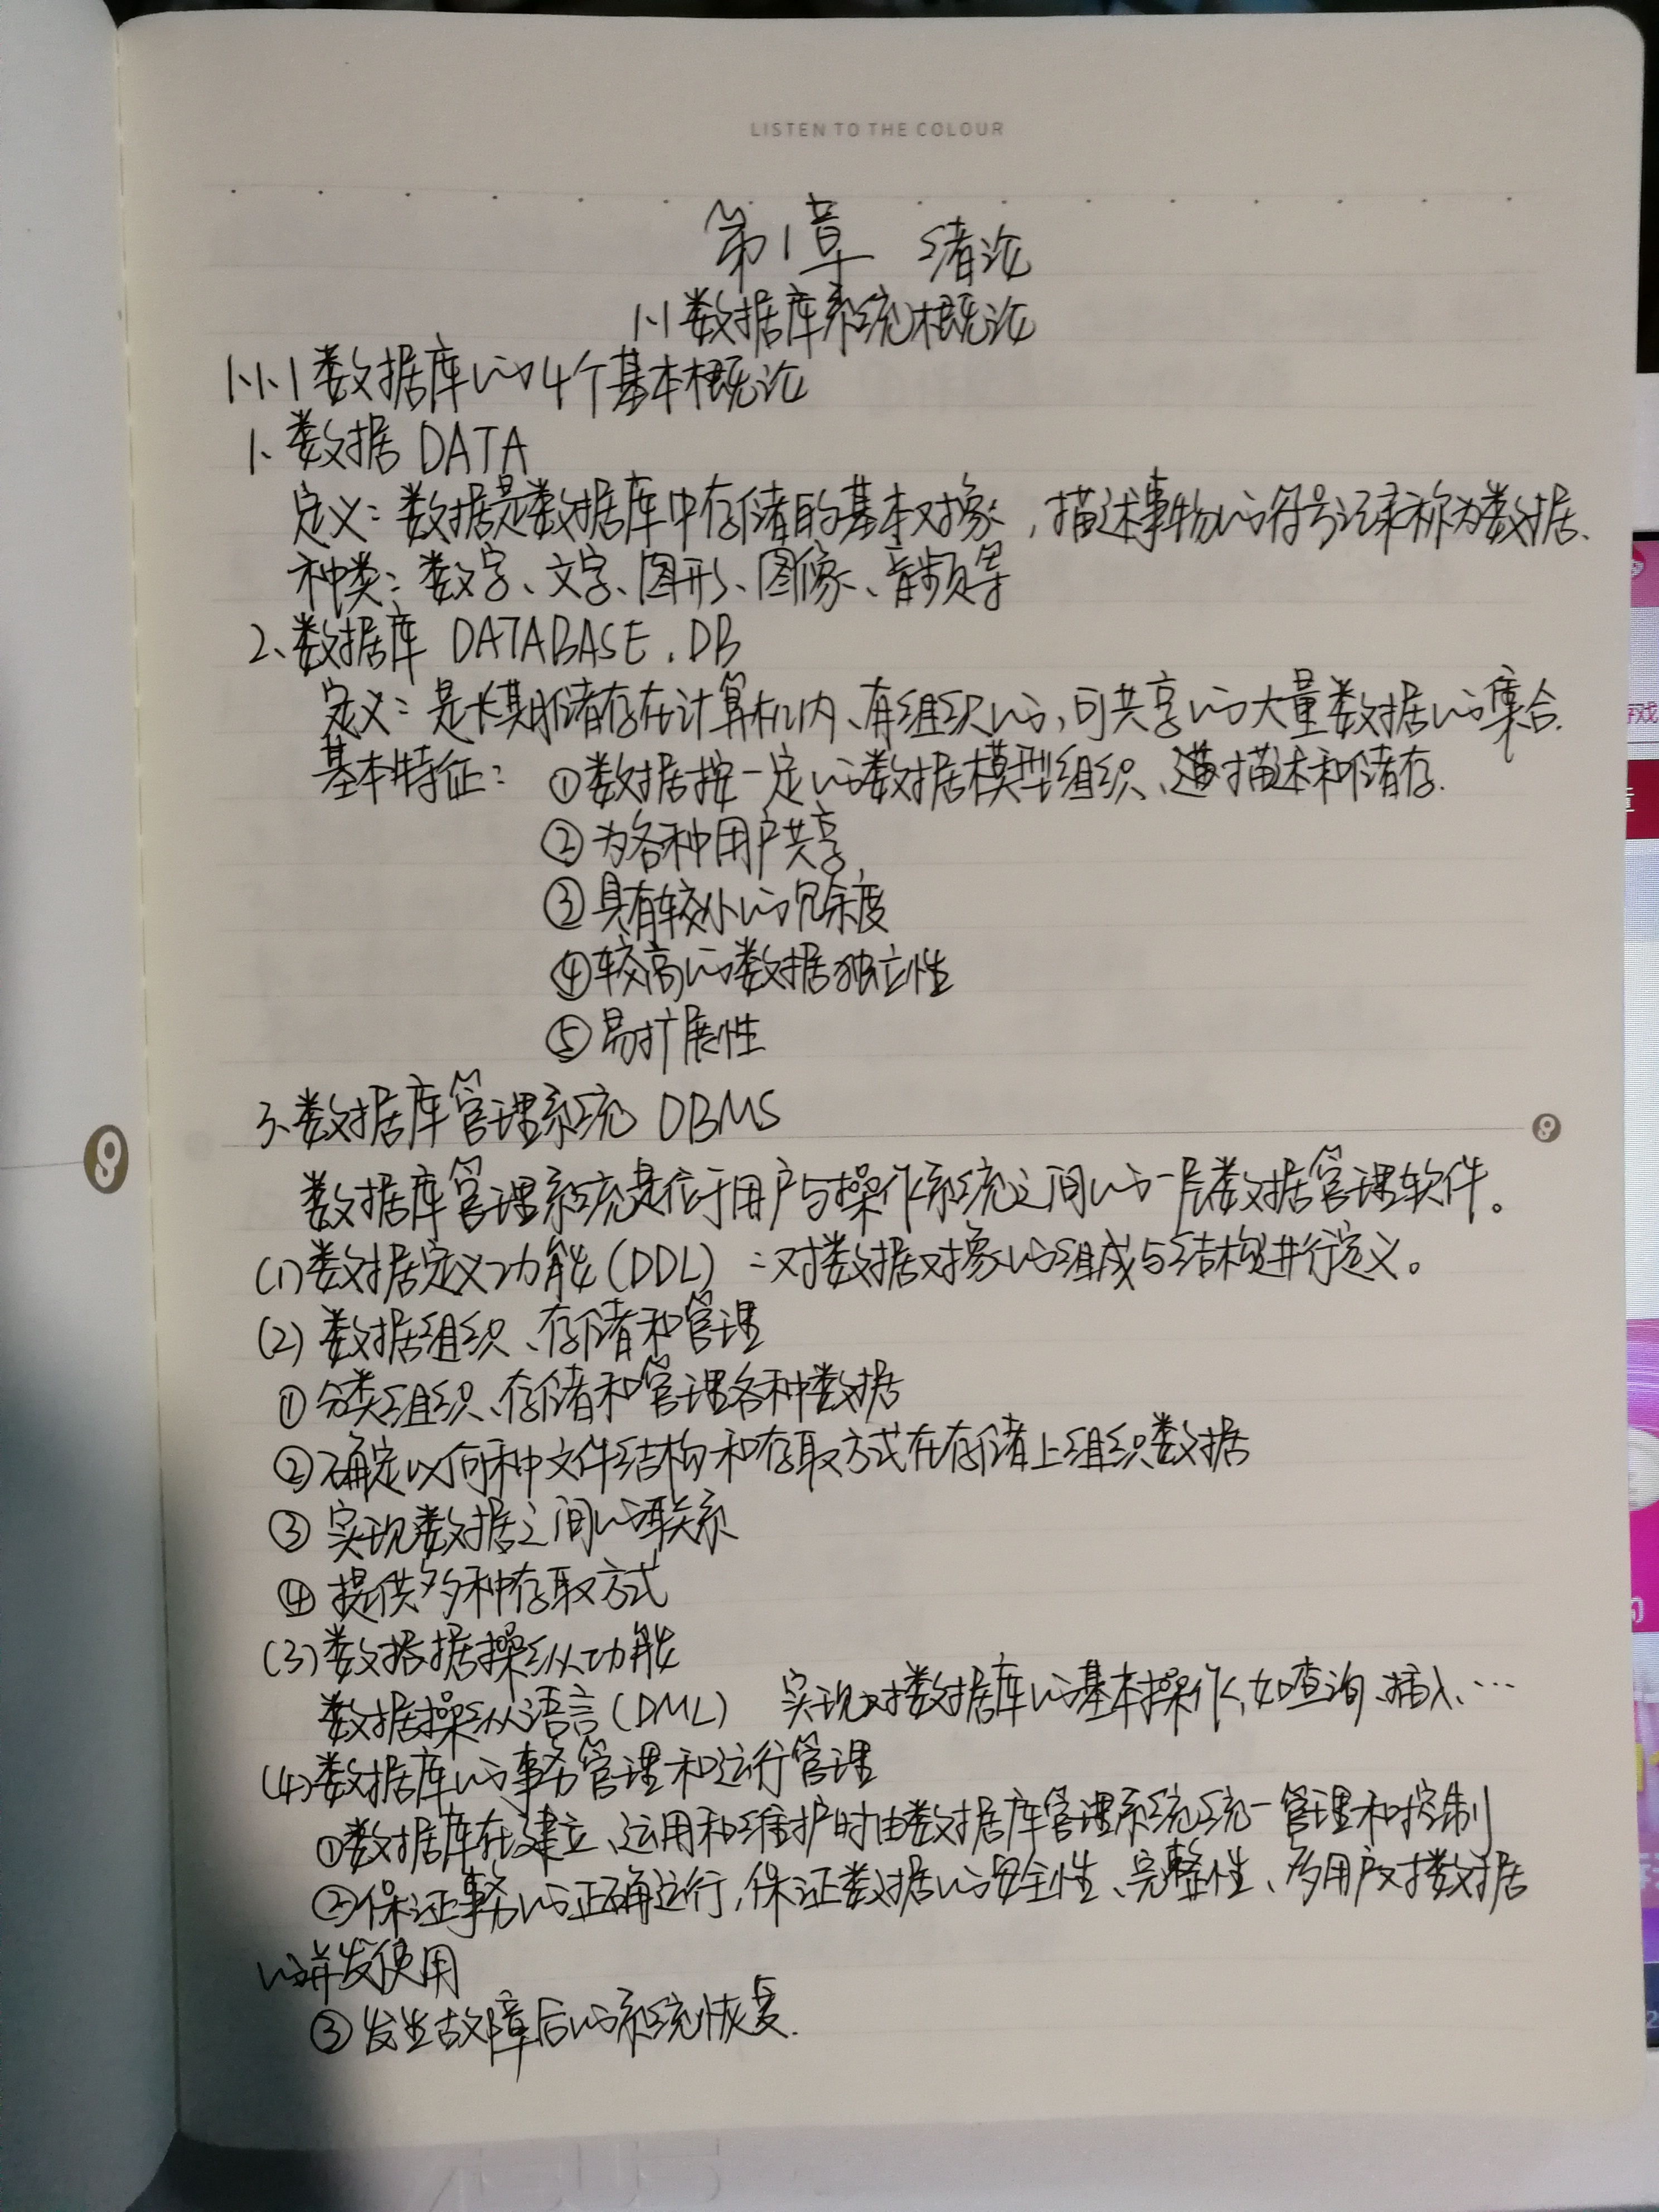 LISTEN TO THE COLOUR
第1章 绪论
1.1 数据库系统概论
1.1.1 数据库的4个基本概论
1、数据 DATA
定义：数据是数据库中存储的基本对象，描述事物的符号记录称为数据、
种类：数字、文字、图形、图像、音频等
2、数据库 DATABASE、DB
定义：是长期储存在计算机内、有组织的，可共享的大量数据的集合.
基本特征：①数据按一定的数据模型组织、描述和储存.
②为各种用户共享
③具有较小的冗余度
④较高的数据独立性
⑤易扩展性
3、数据库管理系统 DBMS
数据库管理系统是位于用户与操作系统之间的一层数据管理软件。
(1)数据定义功能(DDL)：对数据对象的组成与结构进行定义。
(2)数据组织、存储和管理
①分类组织、存储和管理各种数据
②确定以何种文件结构和存取方式在存储上组织数据
③实现数据之间的联系
④提供多种存取方式
(3)数据操纵功能
数据操纵语言(DML) 实现对数据库的基本操作,如查询、插入、…
(4)数据库的事务管理和运行管理
①数据库在建立、运用和维护时由数据库管理系统统一管理和控制
②保证事务的正确运行,保证数据的安全性、完整性、多用户对数据
的并发使用
③发生故障后的系统恢复.